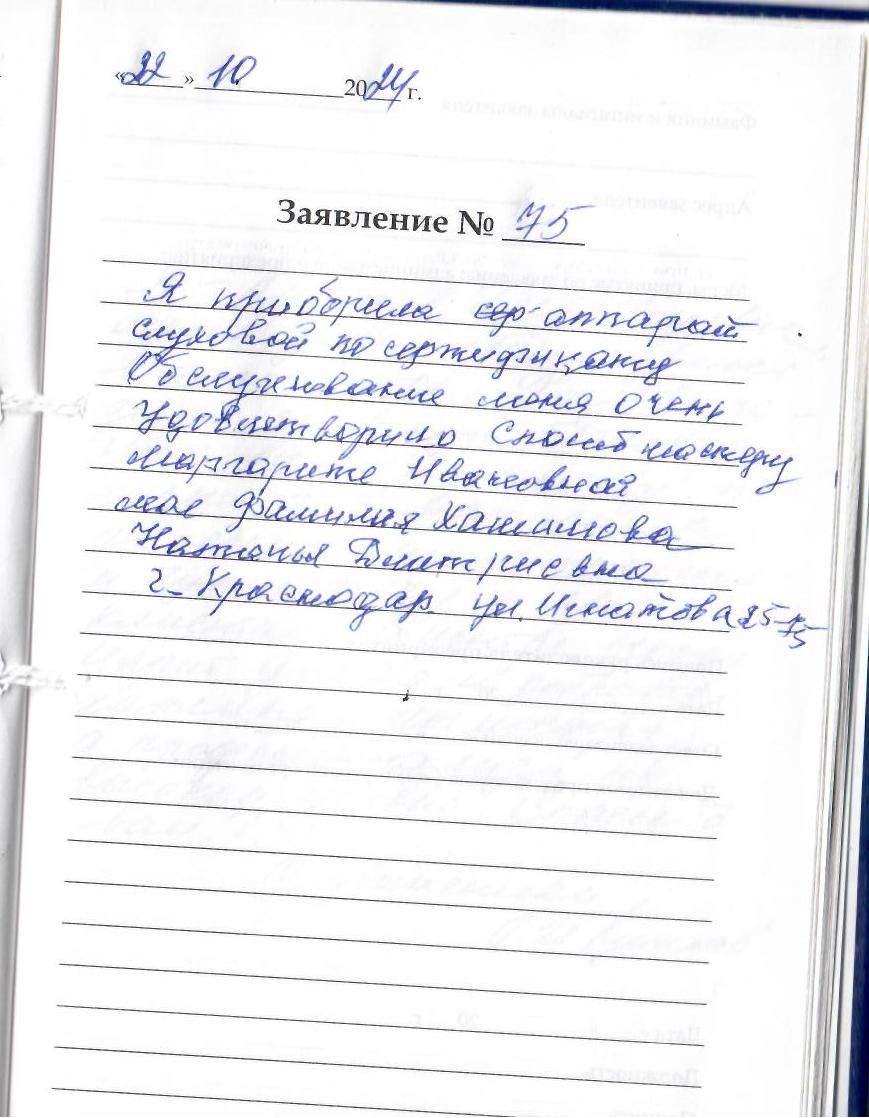 «22» 10 2024 г.
Заявление № 75
Я приобрила сер аппарат
слуховой по сертификату
Обслуживание меня очень
Удовлетворило Спасиб
Маргарите Ивановной
мое фамилия Хашимова
Наталья Дмитриевна
г. Краснодар ул. Игнатова 25-75